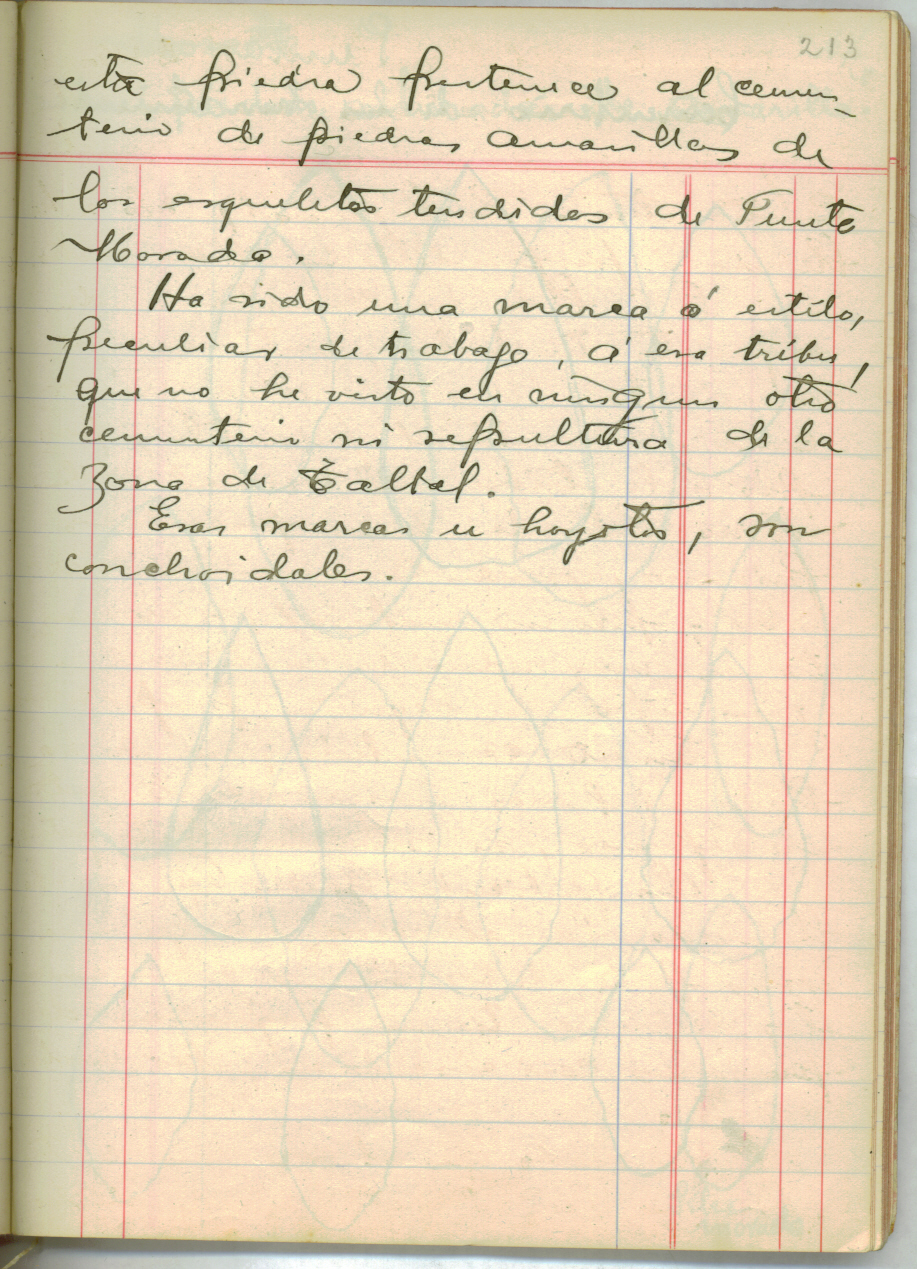 213
esta piedra pertenece al cemen
terio de piedras amarillas de
los esqueletos tendidos de Punta
Morada.
Ha sido una marca ó estilo,
peculiar de trabajo, á esa tribu,
que no he visto en ningun otro
cementerio ni sepsultura de la
zona de Taltal.
Esas marcas u hoyitos, son
conchoidales.